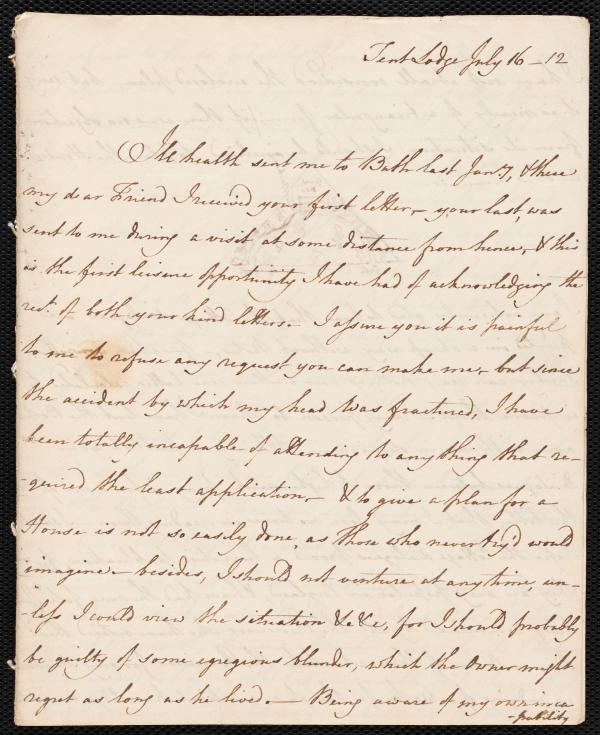 Tent Lodge July 16 - 12
Ill health sent me to Bath last Jany, & there
my dear Friend I received your first letter,- your last, was
sent to me during a visit at some distance from hence, & this
is the first leisure opportunity I have had of acknowledging the
rect. of both your kind letters.- I assure you it is painful
to me to refuse any request you can make me, but since
the accident by which my head was fractured, I have
been totally incapable of attending to any thing that re-
-quired the least application,- & to give a plan for a
House is not so easily done, as those who never try'd would
imagine- besides, I should not venture at any time, un-
-less I could view the situation &c &c, for I should probably
be guilty of some egregious blunder, which the Owner might
regret as long as he lived.- Being aware of my own inca
-pability